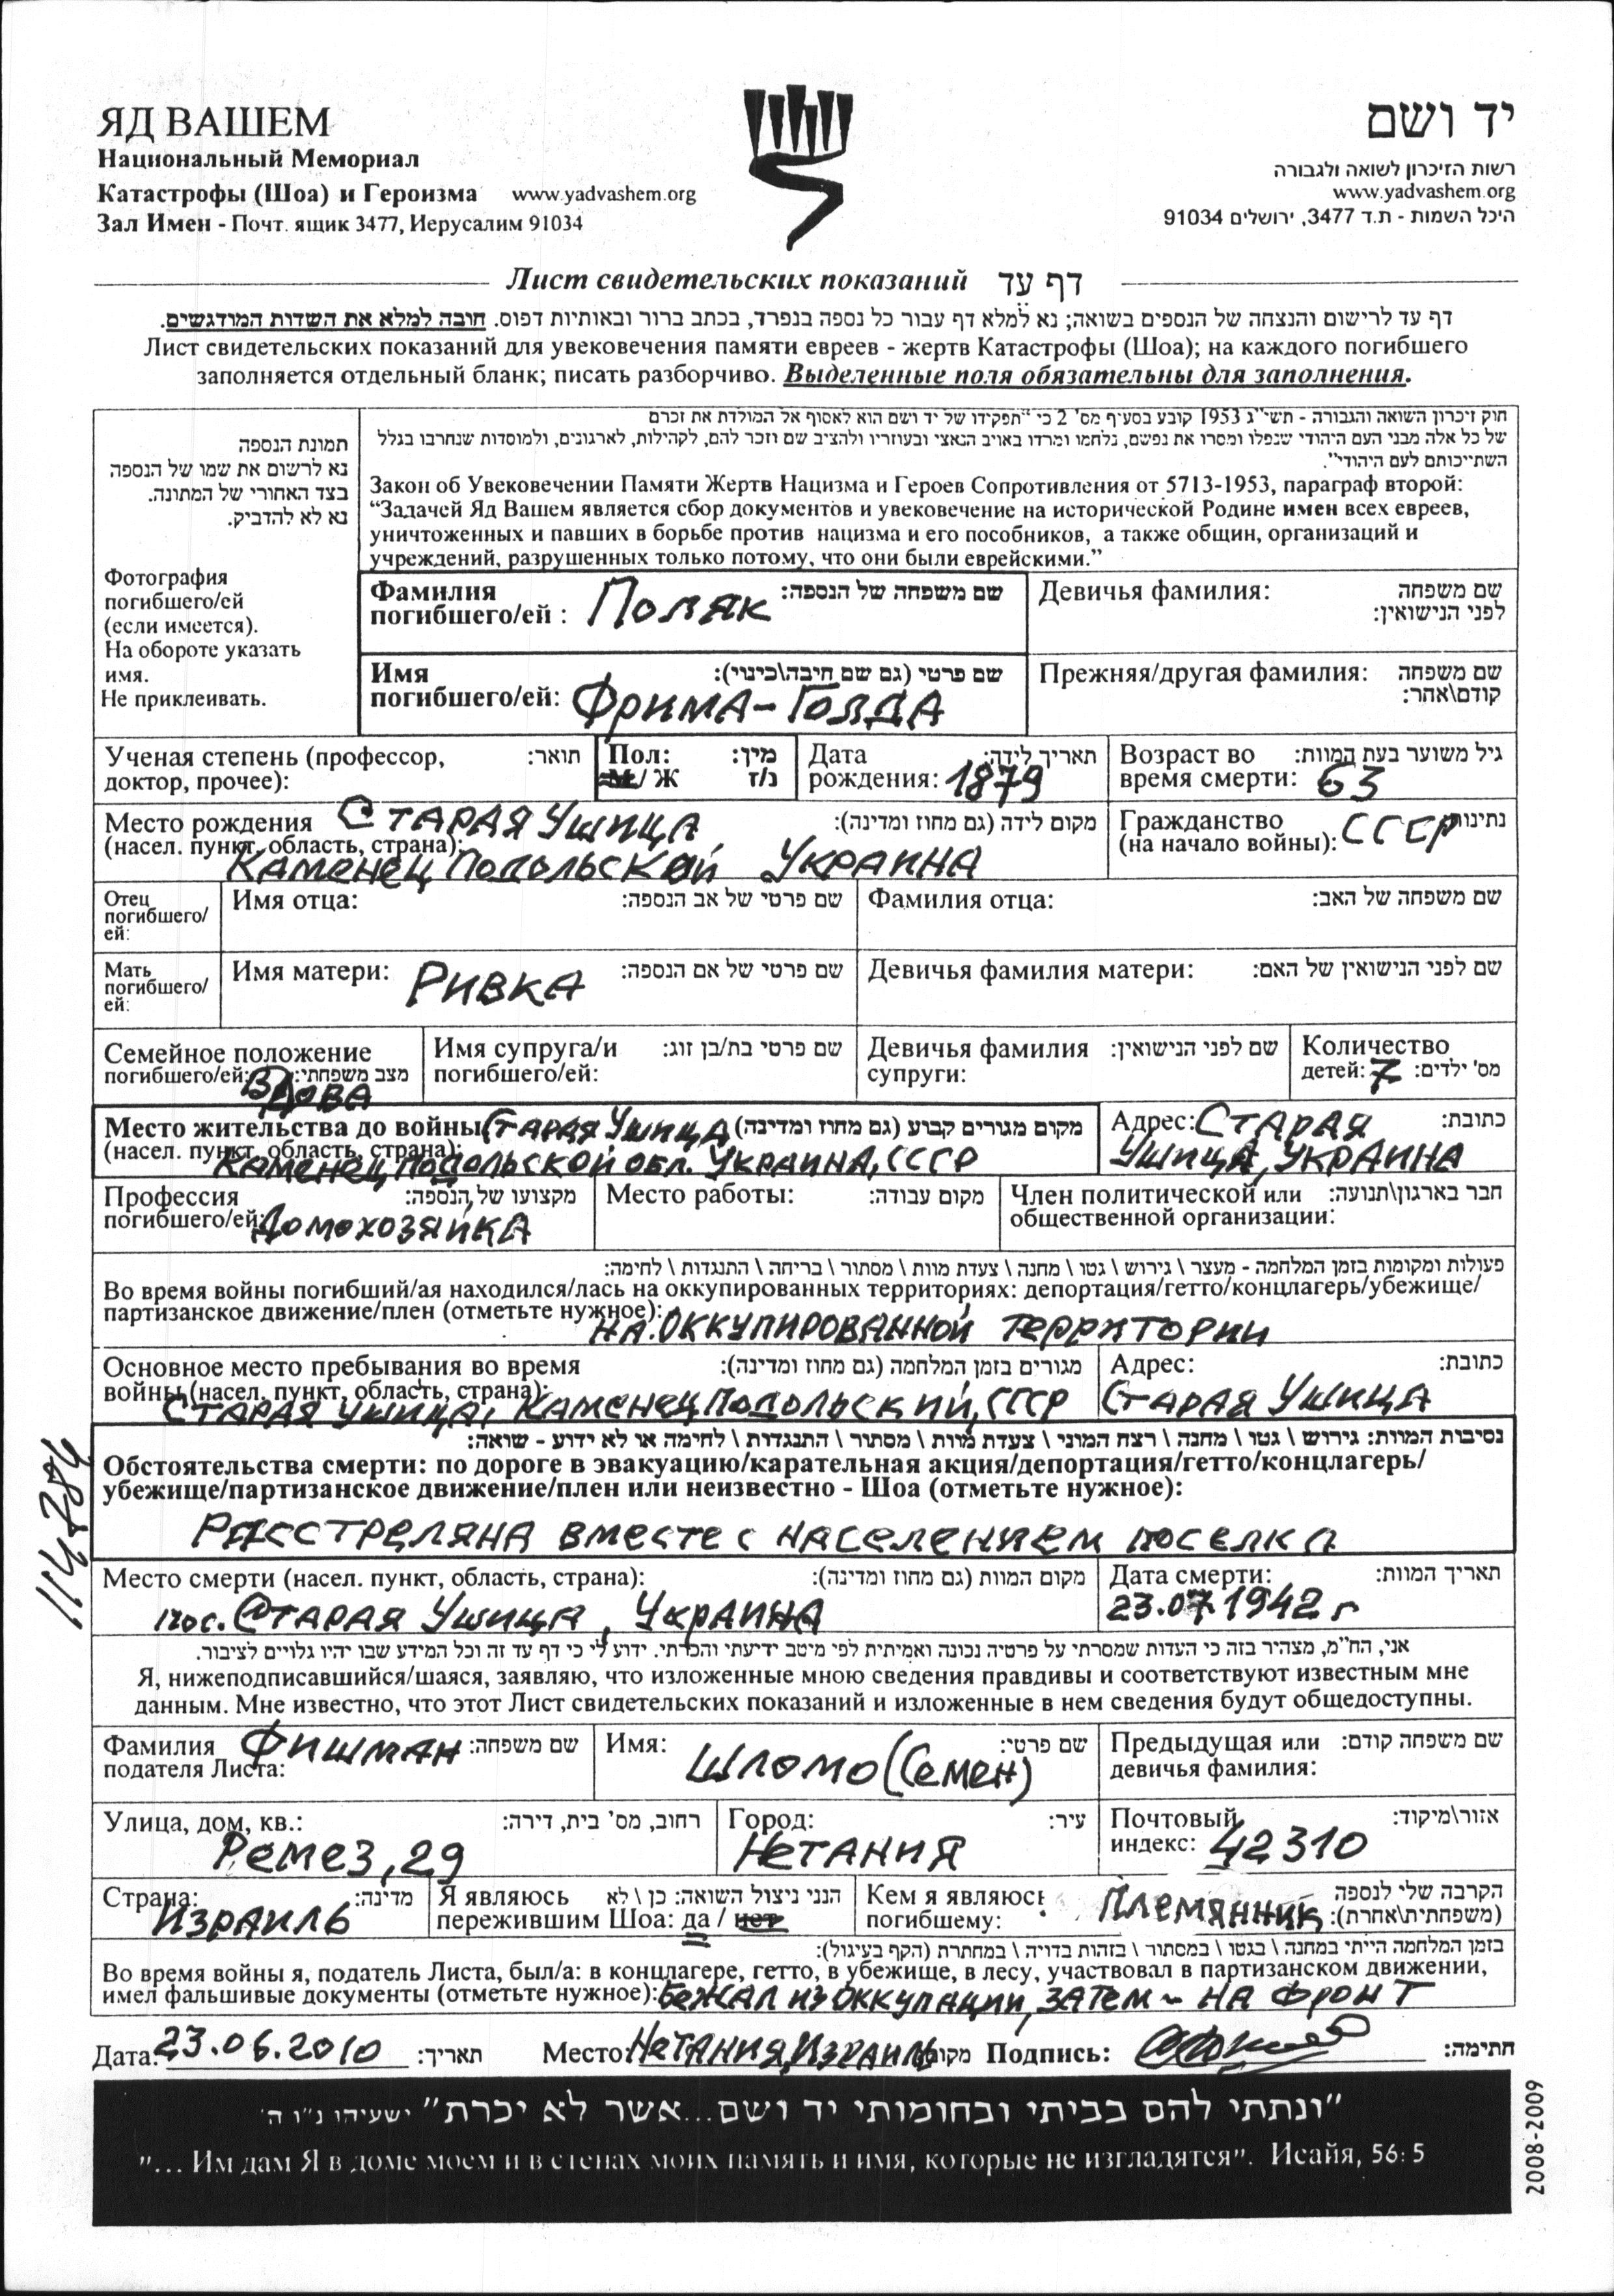 ЯД ВАШЕМ
Национальный Мемориал
Катастрофы (Шоа) и Героизма www.yadvashem.org
Зал Имен - Почт. ящик 3477, Иерусалим 91034
יד ושם
רשות הזיכרון לשואה ולגבורה
www.yadvashem.org
היכל השמות - ת.ד 3477, ירושלים 91034
Лист свидетельских показаний דף עד
דף עד לרישום והנצחה של הנספים בשואה; נא למלא דף עבור כל נספה בנפרד, בכתב ברור ובאותיות דפוס. חובה למלא את השדות המודגשים.
Лист свидетельских показаний для увековечения памяти евреев - жертв Катастрофы (Шоа); на каждого погибшего
заполняется отдельный бланк; писать разборчиво. Выделенные поля обязательны для заполнения.
תמונת הנספה
נא לרשום את שמו של הנספה
בצד האחורי של התמונה.
נא לא להדביק.
Фотография
погибшего/ей
(если имеется).
На обороте указать
имя.
Не приклеивать.
חוק זיכרון השואה והגבורה - תשי"ג 1953 קובע בסעיף מס' 2 כי "תפקידו של יד ושם הוא לאסוף אל המולדת את זכרם
של כל אלה מבני העם היהודי שנפלו ומסרו את נפשם, נלחמו ומרדו באויב הנאצי ובעוזריו ולהציב שם וזכר להם, לקהילות, לארגונים, ולמוסדות שנחרבו בגלל
השתייכותם לעם היהודי".
Закон об Увековечении Памяти Жертв Нацизма и Героев Сопротивления от 5713-1953, параграф второй:
“Задачей Яд Вашем является сбор документов и увековечение на исторической Родине имен всех евреев,
уничтоженных и павших в борьбе против нацизма и его пособников, а также общин, организаций и
учреждений, разрушенных только потому, что они были еврейскими.”
Фамилия שם משפחה של הנספה:
погибшего/ей : Поляк
Девичья фамилия: שם משפחה
לפני הנישואין:
Имя שם פרטי (גם שם חיבה\כינוי):
погибшего/ей: Фрима-Голда
Прежняя/другая фамилия: שם משפחה
קודם\אחר:
Ученая степень (профессор, תואר:
доктор, прочее):
Пол: מין:
М / Ж ז/נ
Дата תאריך לידה:
рождения: 1879
Возраст во גיל משוער בעת המוות:
время смерти: 63
Место рождения Старая Ушица מקום לידה (גם מחוז ומדינה):
(насел. пункт, область, страна): Каменец Подольской Украина
Гражданство נתינות
(на начало войны): СССР
Отец
погибшего/
ей:
Имя отца: שם פרטי של אב הנספה:
Фамилия отца: שם משפחה של האב:
Мать
погибшего/
ей:
Имя матери: Ривка שם פרטי של אם הנספה:
Девичья фамилия матери: שם לפני הנישואין של האם:
Семейное положение
погибшего/ей: Вдова מצב משפחתי:
Имя супруга/и שם פרטי בת/בן זוג:
погибшего/ей:
Девичья фамилия שם לפני הנישואין:
супруги:
Количество
детей: 7 מס' ילדים:
Место жительства до войны Старая Ушица מקום מגורים קבוע (גם מחוז ומדינה)
(насел. пункт, область, страна): Каменец Подольской обл. Украина, СССР
Адрес: Старая כתובת:
Ушица, Украина
Профессия מקצועו של הנספה:
погибшего/ей: Домохозяйка
Место работы: מקום עבודה:
Член политической или חבר בארגון\תנועה:
общественной организации:
פעולות ומקומות בזמן המלחמה - מעצר \ גירוש \ גטו \ מחנה \ צעדת מוות \ מסתור \ בריחה \ התנגדות \ לחימה:
Во время войны погибший/ая находился/лась на оккупированных территориях: депортация/гетто/концлагерь/убежище/
партизанское движение/плен (отметьте нужное): на оккупированной территории
Основное место пребывания во время מגורים בזמן המלחמה (גם מחוז ומדינה):
войны (насел. пункт, область, страна):
Старая Ушица, Каменец Подольский, СССР
Адрес: כתובת:
Старая Ушица
נסיבות המוות: גירוש \ גטו \ מחנה \ רצח המוני \ צעדת מוות \ מסתור \ התנגדות \ לחימה או לא ידוע - שואה:
Обстоятельства смерти: по дороге в эвакуацию/карательная акция/депортация/гетто/концлагерь/
убежище/партизанское движение/плен или неизвестно - Шоа (отметьте нужное):
Расстреляна вместе с населением поселка
114284
Место смерти (насел. пункт, область, страна): מקום המוות (גם מחוז ומדינה):
пос. Старая Ушица, Украина
Дата смерти: תאריך המוות:
23.07.1942 г
אני, הח"מ, מצהיר בזה כי העדות שמסרתי על פרטיה נכונה ואמיתית לפי מיטב ידיעתי והכרתי. ידוע לי כי דף עד זה וכל המידע שבו יהיו גלויים לציבור.
Я, нижеподписавшийся/шаяся, заявляю, что изложенные мною сведения правдивы и соответствуют известным мне
данным. Мне известно, что этот Лист свидетельских показаний и изложенные в нем сведения будут общедоступны.
Фамилия Фишман שם משפחה:
подателя Листа:
Имя: שם פרטי:
Шломо (Семен)
Предыдущая или שם משפחה קודם:
девичья фамилия:
Улица, дом, кв.: רחוב, מס' בית, דירה:
Ремез, 29
Город: עיר:
Нетания
Почтовый אזור\מיקוד:
индекс: 42310
Страна: מדינה:
Израиль
Я являюсь הנני ניצול השואה: כן \ לא
пережившим Шоа: да / нет
Кем я являюсь הקרבה שלי לנספה
погибшему: Племянник (משפחתית\אחרת):
בזמן המלחמה הייתי במחנה \ בגטו \ במסתור \ בזהות בדויה \ במחתרת (הקף בעיגול):
Во время войны я, податель Листа, был/а: в концлагере, гетто, в убежище, в лесу, участвовал в партизанском движении,
имел фальшивые документы (отметьте нужное): бежал из оккупации, затем - на фронт
Дата: 23.06.2010 תאריך: Место: Нетания, Израиль מקום Подпись: חתימה:
"ונתתי להם בביתי ובחומותי יד ושם...אשר לא יכרת" ישעיהו נ"ו ה'
"... Им дам Я в доме моем и в стенах моих память и имя, которые не изгладятся". Исайя, 56: 5
2008-2009